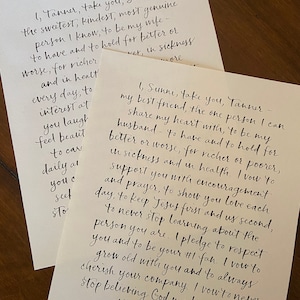 I, Tanner, take you, S
the sweetest, kindest, most genuine
person I know, to be my wife
to have and to hold for better or
worse, for richer or poorer, in sickness
and in health
every day, to
interest a
you laugh
feel beauti
to ca
daily a
you c
see
sto
I, Sunni, take you, Tanner—
my best friend the one person I can
share my heart with, to be my
husband - to have and to hold for
better or worse, for richer or poorer,
in sickness and in health. I vow to
support you with encouragement
and prayer, to show you love each
day, to keep Jesus first and us second,
to never stop learning about the
person you are. I pledge to respect
you and to be your #1 fan. I vow to
grow old with you and to always
cherish your company. I vow to never
stop believing God